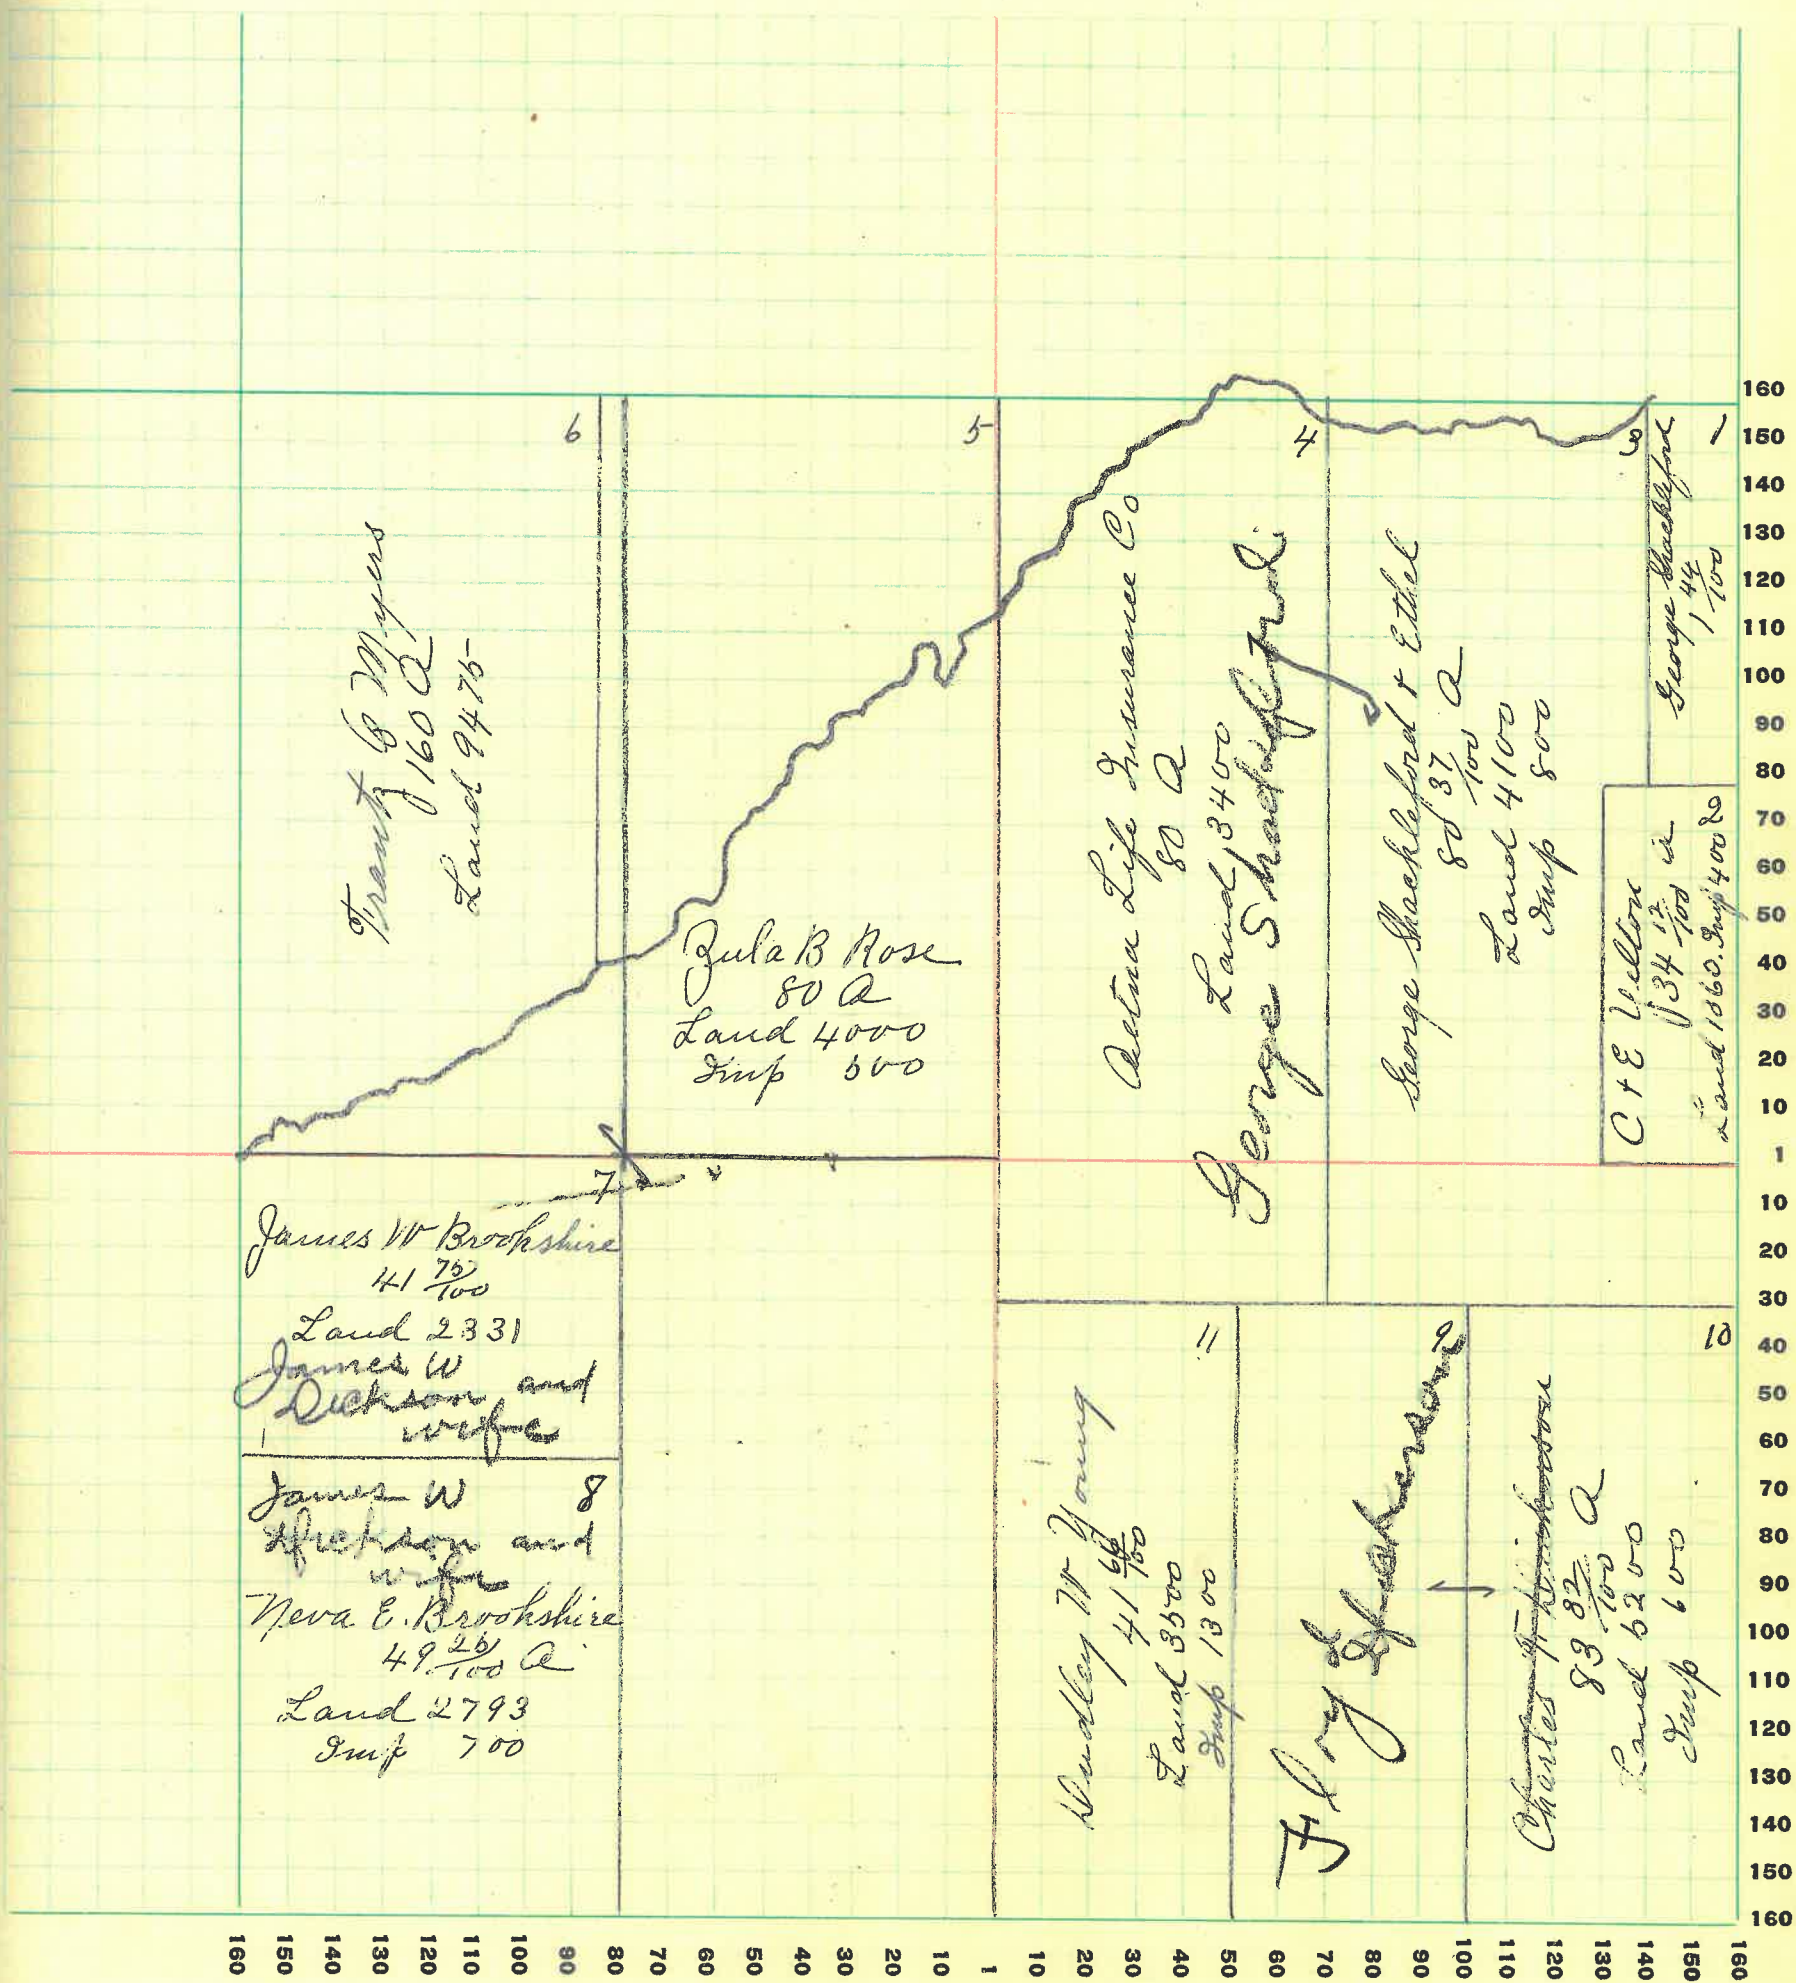 6
Trantz & Myers
160 A
Land 9475
5
Zula B Rose
80 A
Land 4000
Imp 500
4
Aetna Life Insurance Co
80 A
Land 3400
George Shackleford
George Shackleford & Ethel
80 37/100 A
Land 4100
Imp 800
3
1
George Shackleford
1 44/100
C & E Velton
34 12/100 a
Land 1060. Imp 400
7
James W Brookshire
41 75/100
Land 2331
James W
Dickson and
wife
James W 8
Dickson and
wife
Neva E. Brookshire
49 25/100 A
Land 2793
Imp 700
11
Dudley W Young
41 /100
Land 3500
Imp 1300
9
10
Charles
83 82/100 A
Land 5200
Imp 600
160
150
140
130
120
110
100
90
80
70
60
50
40
30
20
10
1
10
20
30
40
50
60
70
80
90
100
110
120
130
140
150
160
160 150 140 130 120 110 100 90 80 70 60 50 40 30 20 10 1 10 20 30 40 50 60 70 80 90 100 110 120 130 140 150 160